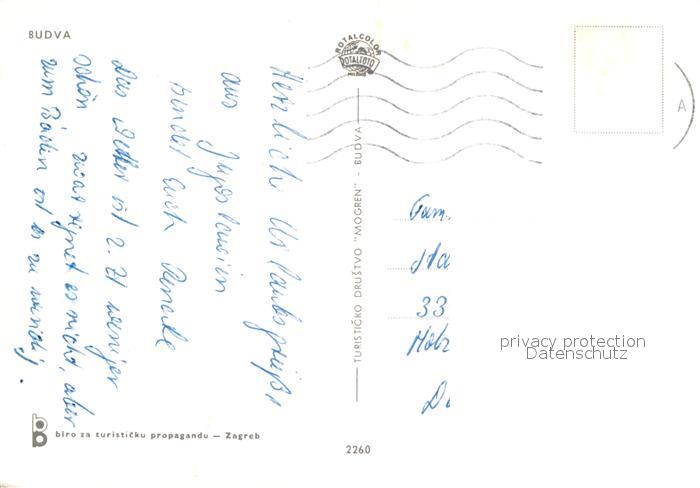 BUDVA
ROTALCOLOR
ROTALFOTO
Herzliche Urlaubsgrüße
aus Jugoslawien
sendet Euch Renate
Das Wetter ist z. Zt weniger
schön, zwar regnet es nicht, aber
zum Baden ist es zu windig.
TURISTIČKO DRUŠTVO "MOGREN" - BUDVA
Fam.
33
privacy protection
Datenschutz
biro za turističku propagandu — Zagreb
2260
A